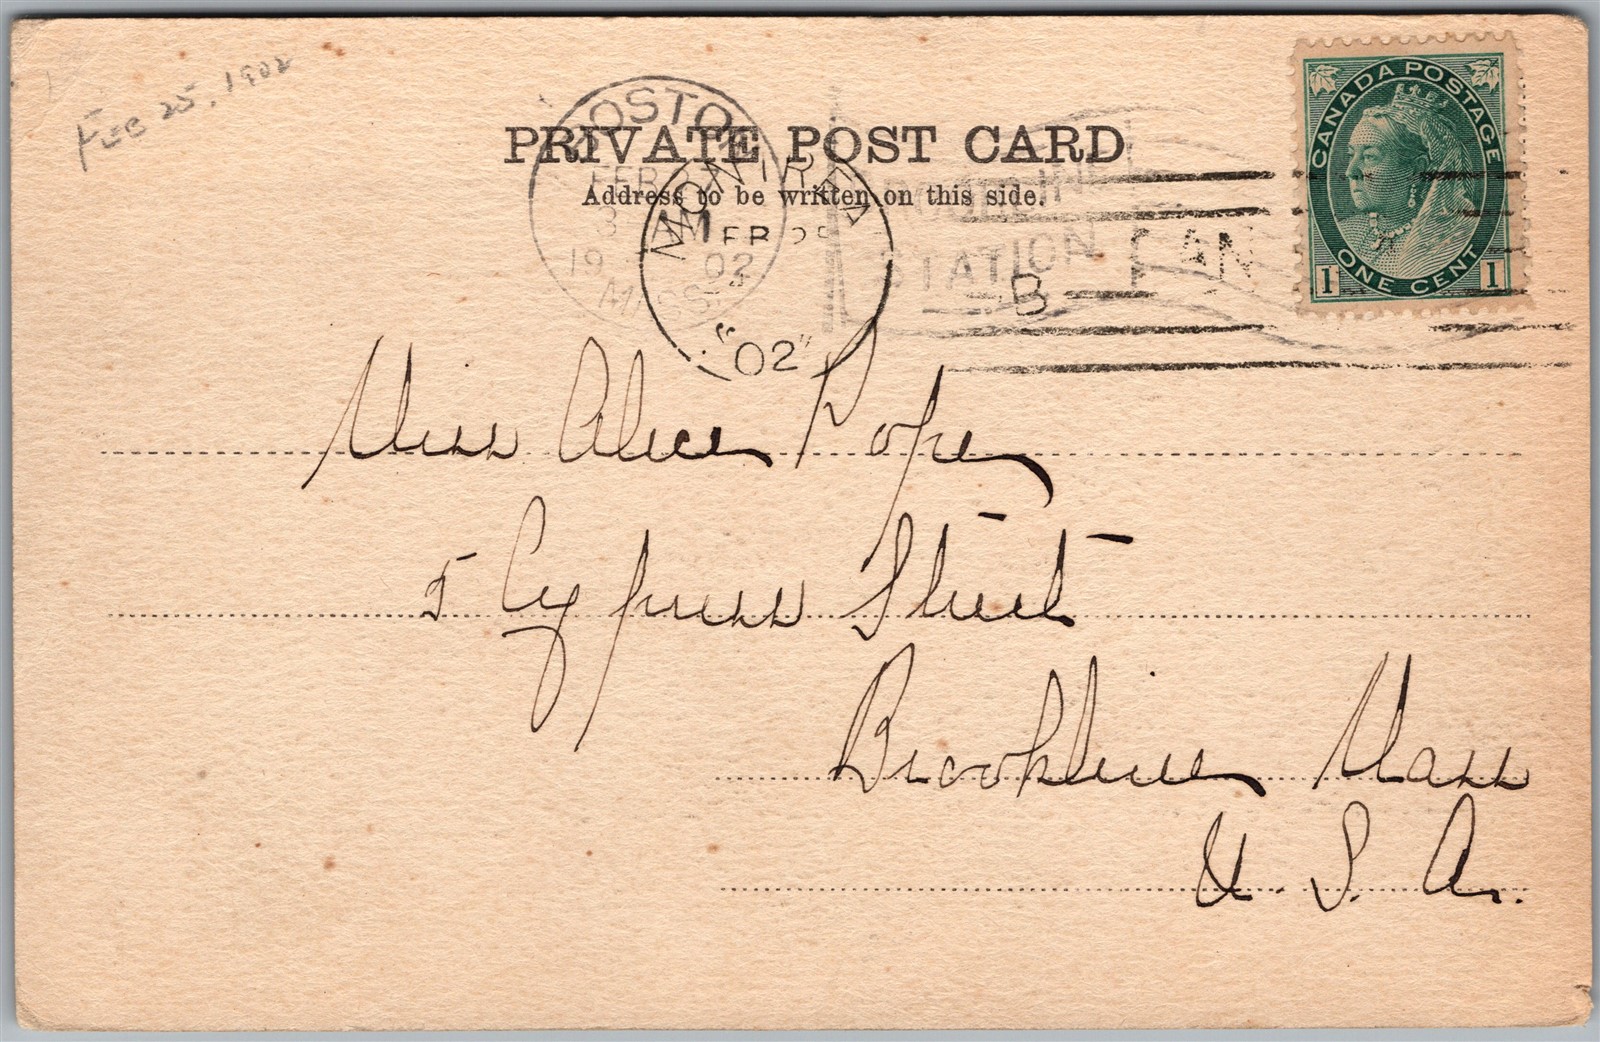 FEB 25, 1902
CANADA POSTAGE
ONE CENT
1 1
PRIVATE POST CARD
Address to be written on this side.
BOSTON
FEB
3 AM
19 02
MASS.
MONTREAL
FEB 25
"02"
STATION
B
CAN
Miss Alice Pope
5 Cypress Street
Brookline Mass
U. S. A.